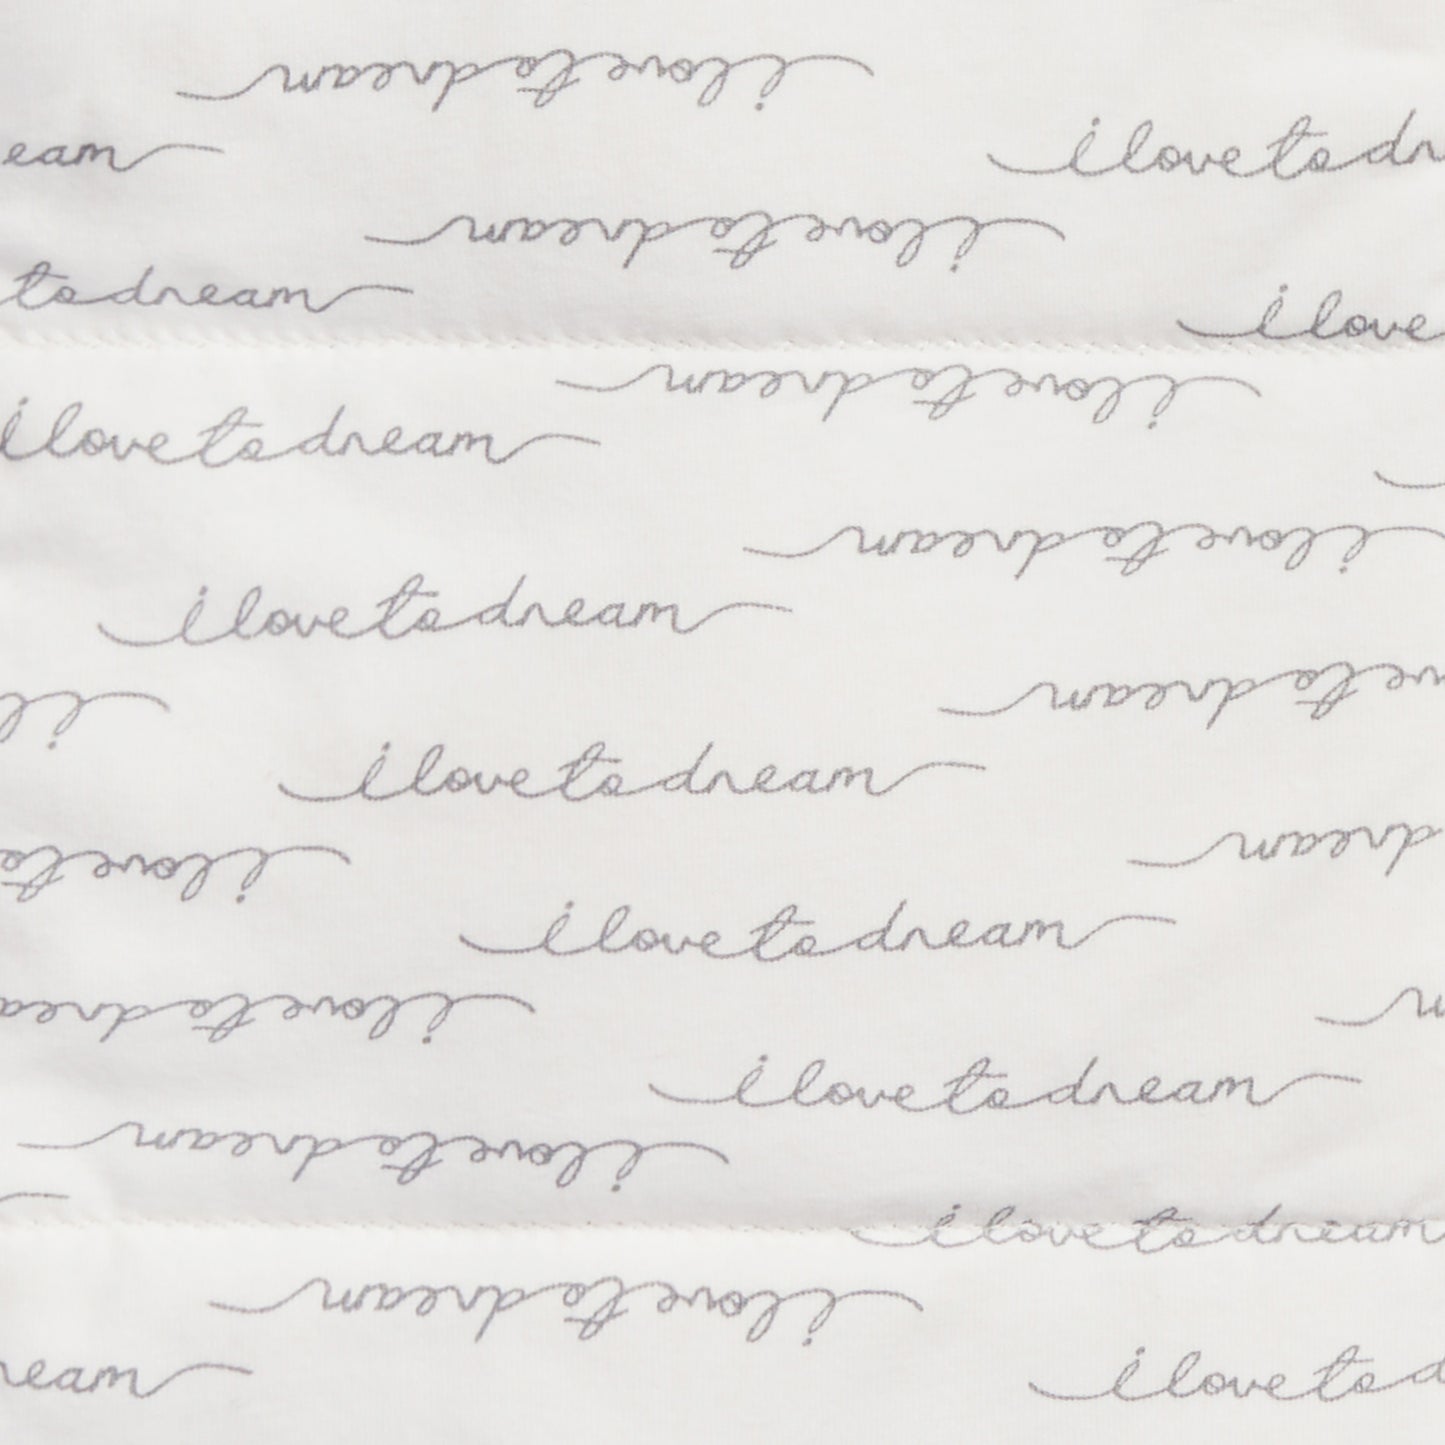 i love to dream
eam
i love to dr
i love to dream
to dream
i love
i love to dream
i love to dream
i love to dream
i love to dream
ve to dream
i l
i love to dream
dream
love to
i love to dream
i love to drea
i love to dream
i love to dream
i love to dream
i love to dream
ream
i love to d